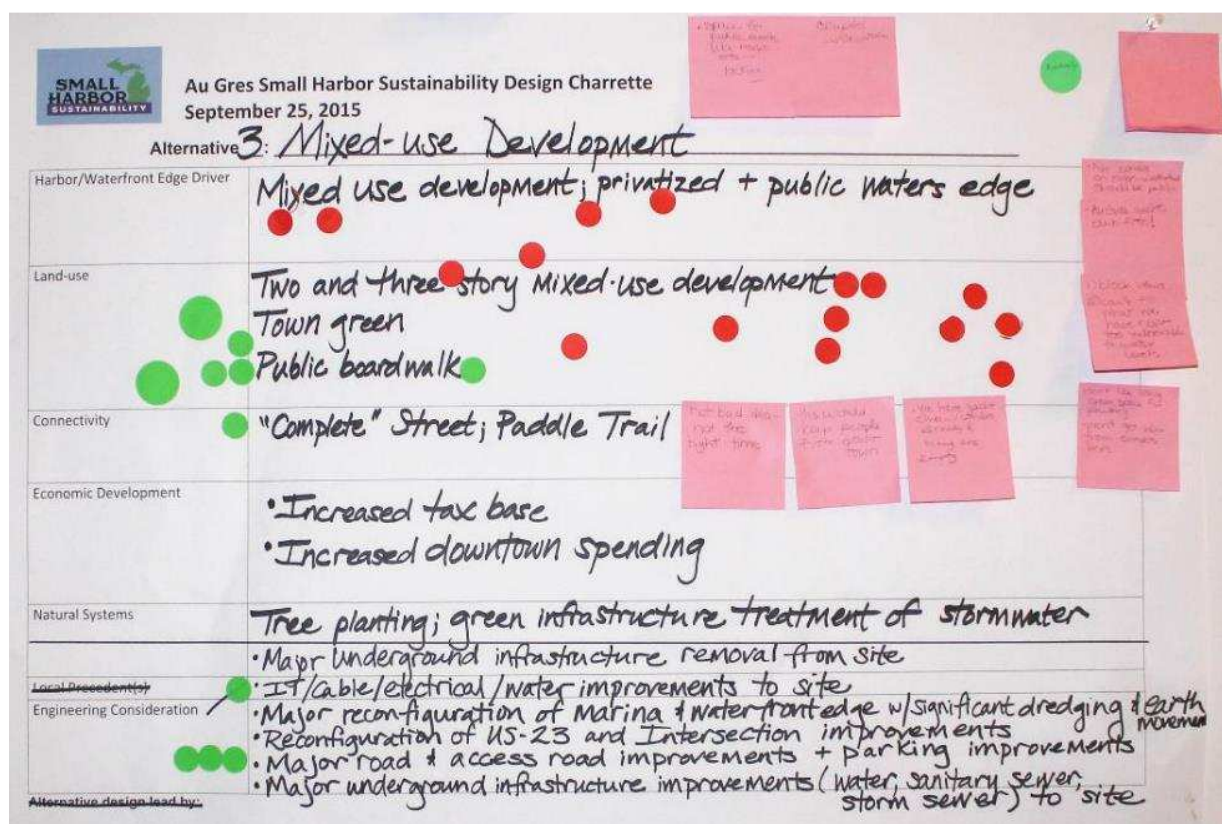 SMALL
HARBOR
SUSTAINABILITY
Au Gres Small Harbor Sustainability Design Charrette
September 25, 2015
Alternative 3: Mixed-use Development
Harbor/Waterfront Edge Driver
Mixed use development; privatized + public waters edge
Land-use
Two and three story Mixed-use development
Town green
Public boardwalk
Connectivity
"Complete" Street; Paddle Trail
not bad idea
not the
right time
this would
keep people
from
town
already &
many are
empty
Economic Development
• Increased tax base
• Increased downtown spending
Natural Systems
Tree planting; green infrastructure treatment of stormwater
• Major underground infrastructure removal from site
Local Precedent(s)
• IT/cable/electrical/water improvements to site
Engineering Consideration
• Major reconfiguration of Marina & waterfront edge w/significant dredging & earth movement
• Reconfiguration of US-23 and Intersection improvements
• Major road & access road improvements + parking improvements
• Major underground infrastructure improvements (water, sanitary sewer,
storm sewer) to site
Alternative design lead by: